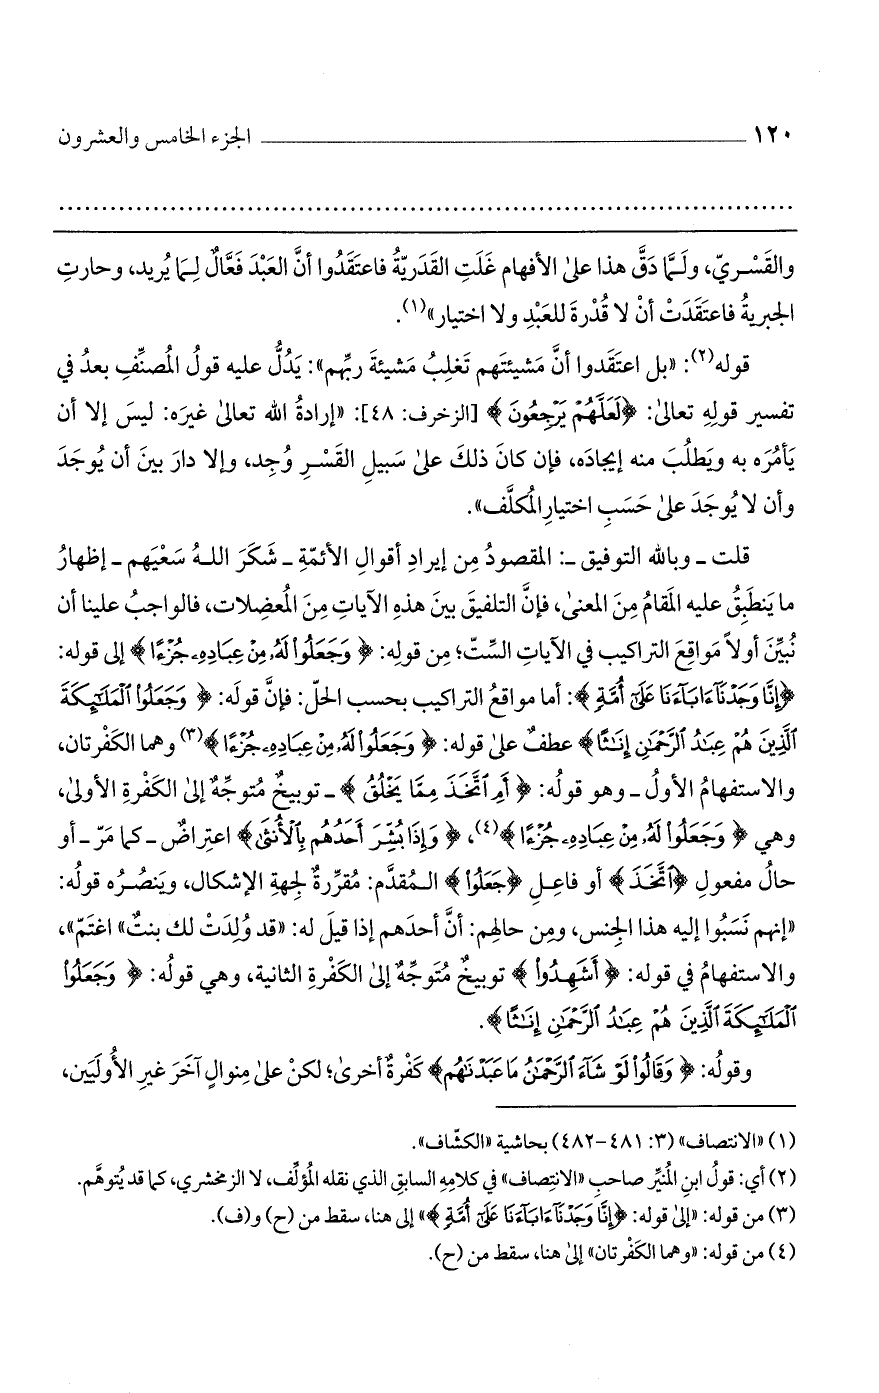 ١٢٠ الجزء الخامس والعشرون
والقَسْـريّ، ولَـمَّا دَقَّ هذا علىٰ الأفهام غَلَتِ القَدَريّةُ فاعتَقَدُوا أنَّ العَبْدَ فَعَّالٌ لِـمَا يُريد، وحارتِ
الجبريةُ فاعتَقَدَتْ أنْ لا قُدْرةَ للعَبْدِ ولا اختيار»(١).
قوله(٢): «بل اعتَقَدوا أنَّ مَشيئتَهم تَغلِبُ مَشيئةَ ربِّهم»: يَدُلُّ عليه قولُ المُصنِّفِ بعدُ في
تفسير قولِهِ تعالىٰ: ﴿لَعَلَّهُمْ يَرْجِعُونَ﴾ [الزخرف: ٤٨]: «إرادةُ الله تعالىٰ غيرَه: ليسَ إلا أن
يَأمُرَه به ويَطلُبَ منه إيجادَه، فإن كانَ ذلكَ علىٰ سَبيلِ القَسْـرِ وُجِد، وإلا دارَ بينَ أن يُوجَدَ
وأن لا يُوجَدَ علىٰ حَسَبِ اختيارِ المُكلَّف».
قلت ـ وبالله التوفيق ـ: المقصودُ مِن إيرادِ أقوالِ الأئمّةِ ـ شَكَرَ اللهُ سَعْيَهم ـ إظهارُ
ما يَنطَبِقُ عليه المَقامُ مِنَ المعنىٰ، فإنَّ التلفيقَ بينَ هذهِ الآياتِ مِنَ المُعضِلات، فالواجبُ علينا أن
نُبيِّنَ أولاً مَواقِعَ التراكيب في الآياتِ السِّتّ؛ مِن قولِه: ﴿وَجَعَلُوا۟ لَهُۥ مِنْ عِبَادِهِۦ جُزْءًا﴾ إلى قوله:
﴿إِنَّا وَجَدْنَآ ءَابَآءَنَا عَلَىٰٓ أُمَّةٍ﴾: أما مواقعُ التراكيب بحسب الحلّ: فإنَّ قولَه: ﴿وَجَعَلُوا۟ ٱلْمَلَٰٓئِكَةَ
ٱلَّذِينَ هُمْ عِبَٰدُ ٱلرَّحْمَٰنِ إِنَٰثًا﴾ عطفٌ علىٰ قوله: ﴿وَجَعَلُوا۟ لَهُۥ مِنْ عِبَادِهِۦ جُزْءًا﴾(٣) وهما الكَفْرتان،
والاستفهامُ الأولُ ـ وهو قولُه: ﴿أَمِ ٱتَّخَذَ مِمَّا يَخْلُقُ﴾ ـ توبيخٌ مُتوجِّهٌ إلىٰ الكَفْرةِ الأولىٰ،
وهي ﴿وَجَعَلُوا۟ لَهُۥ مِنْ عِبَادِهِۦ جُزْءًا﴾(٤)، ﴿وَإِذَا بُشِّرَ أَحَدُهُم بِٱلْأُنثَىٰ﴾ اعتِراضٌ ـ كما مَرّ ـ أو
حالُ مفعولِ ﴿ٱتَّخَذَ﴾ أو فاعِلِ ﴿جَعَلُوا۟﴾ الـمُقدَّم: مُقرِّرةٌ لِجهةِ الإشكال، ويَنصُـرُه قولُه:
«إنهم نَسَبُوا إليه هذا الجِنس، ومِن حالِهِم: أنَّ أحدَهم إذا قيلَ له: «قد وُلِدَتْ لك بنتٌ» اغتَمّ»،
والاستفهامُ في قوله: ﴿أَشَهِدُوا۟﴾ توبيخٌ مُتَوجِّهٌ إلىٰ الكَفْرةِ الثانية، وهي قولُه: ﴿وَجَعَلُوا۟
ٱلْمَلَٰٓئِكَةَ ٱلَّذِينَ هُمْ عِبَٰدُ ٱلرَّحْمَٰنِ إِنَٰثًا﴾.
وقولُه: ﴿وَقَالُوا۟ لَوْ شَآءَ ٱلرَّحْمَٰنُ مَا عَبَدْنَٰهُم﴾ كَفْرةٌ أخرىٰ؛ لكنْ علىٰ مِنوالٍ آخَرَ غيرِ الأُولَيَين،
(١) «الانتصاف» (٣: ٤٨١-٤٨٢) بحاشية «الكشّاف».
(٢) أي: قولُ ابنِ المُنيِّر صاحبِ «الانتِصاف» في كلامِهِ السابقِ الذي نقله المُؤلِّف، لا الزمخشري، كما قد يُتوهَّم.
(٣) من قوله: «إلىٰ قوله: ﴿إِنَّا وَجَدْنَآ ءَابَآءَنَا عَلَىٰٓ أُمَّةٍ﴾» إلىٰ هنا، سقط من (ح) و(ف).
(٤) من قوله: «وهما الكَفْرتان» إلىٰ هنا، سقط من (ح).